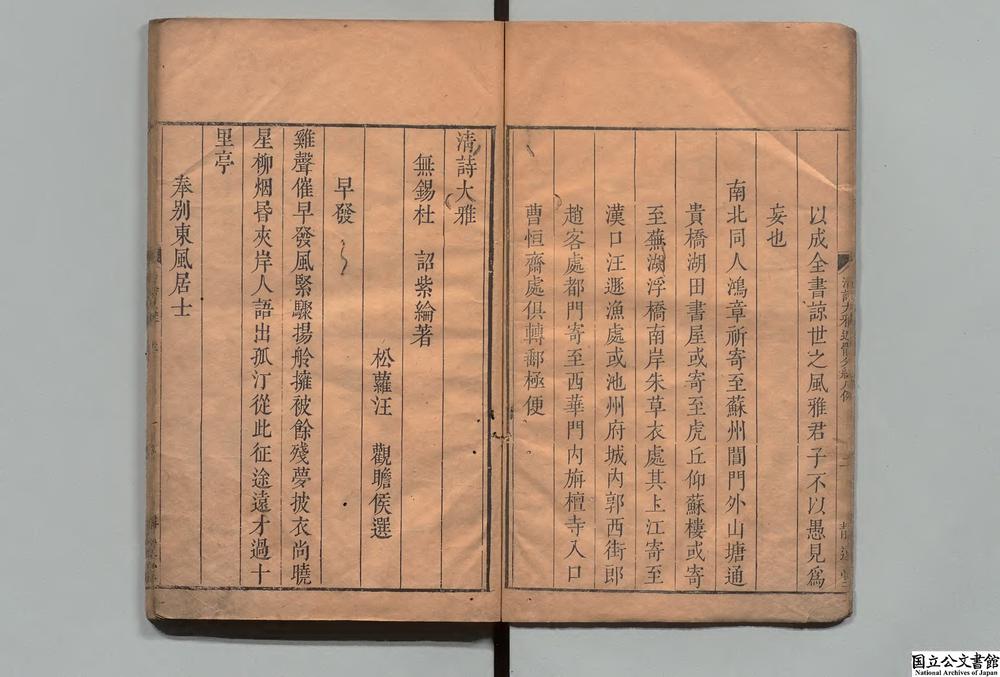 以成全書諒世之風雅君子不以愚見為
妄也
南北同人鴻章祈寄至蘇州閶門外山塘通
貴橋湖田書屋或寄至虎丘仰蘇樓或寄
至蕪湖浮橋南岸朱草衣處其上江寄至
漢口汪遯漁處或池州府城內郭西街郎
趙客處都門寄至西華門內旃檀寺入口
曹恒齋處俱轉郵極便
清詩大雅
無錫杜 詔紫綸著
松蘿汪 觀瞻侯選
早發
雞聲催早發風緊驟揚舲擁被餘殘夢披衣尚曉
星柳烟昏夾岸人語出孤汀從此征途遠才過十
里亭
奉別東風居士
国立公文書館
National Archives of Japan